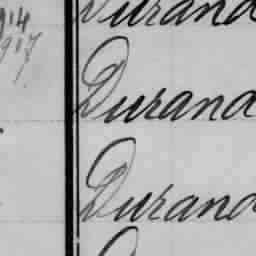 914 Durand
1917 Durand
Durand